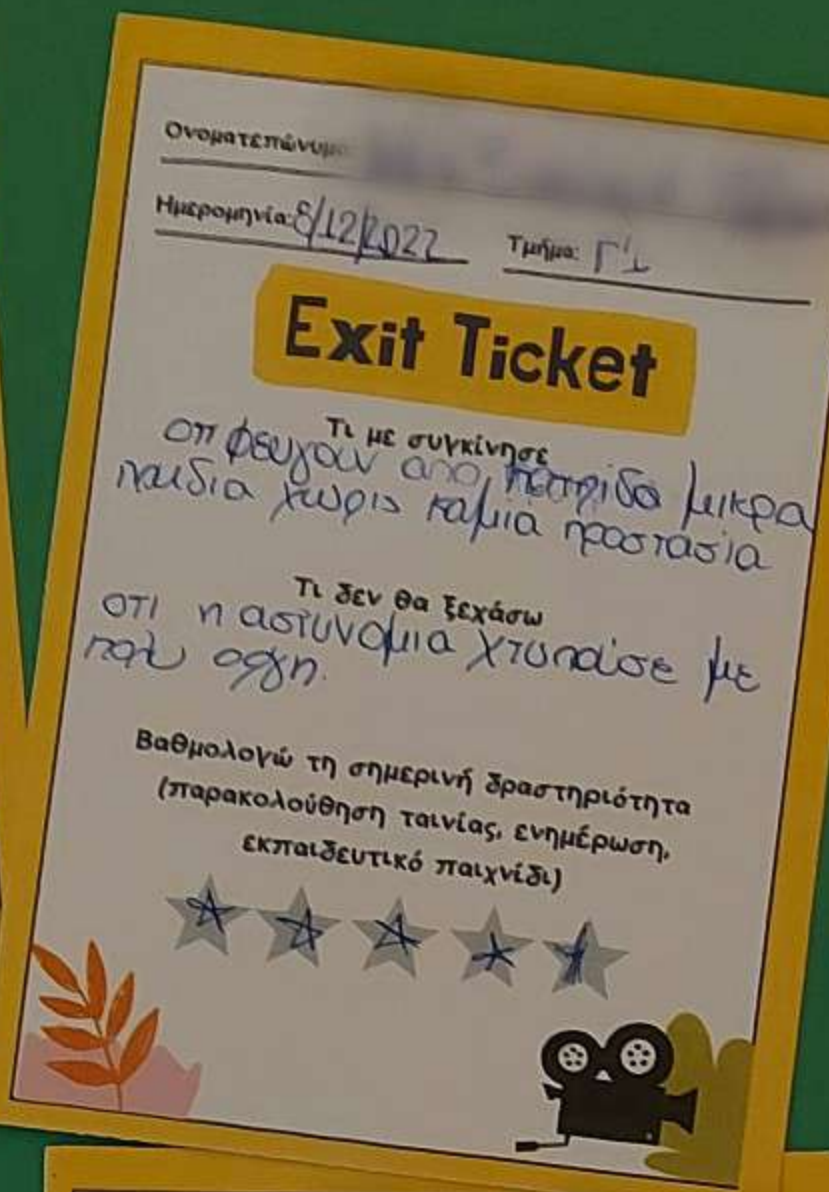 Ονοματεπώνυμο:
Ημερομηνία: 8/12/2022 Τμήμα: Γ'1
Exit Ticket
Τι με συγκίνησε
οτι φευγουν απο πατριδα μικρα
παιδια χωρις καμια προστασια
Τι δεν θα ξεχάσω
οτι η αστυνομια χτυπαισε με
πολυ οργη.
Βαθμολογώ τη σημερινή δραστηριότητα
(παρακολούθηση ταινίας, ενημέρωση,
εκπαιδευτικό παιχνίδι)